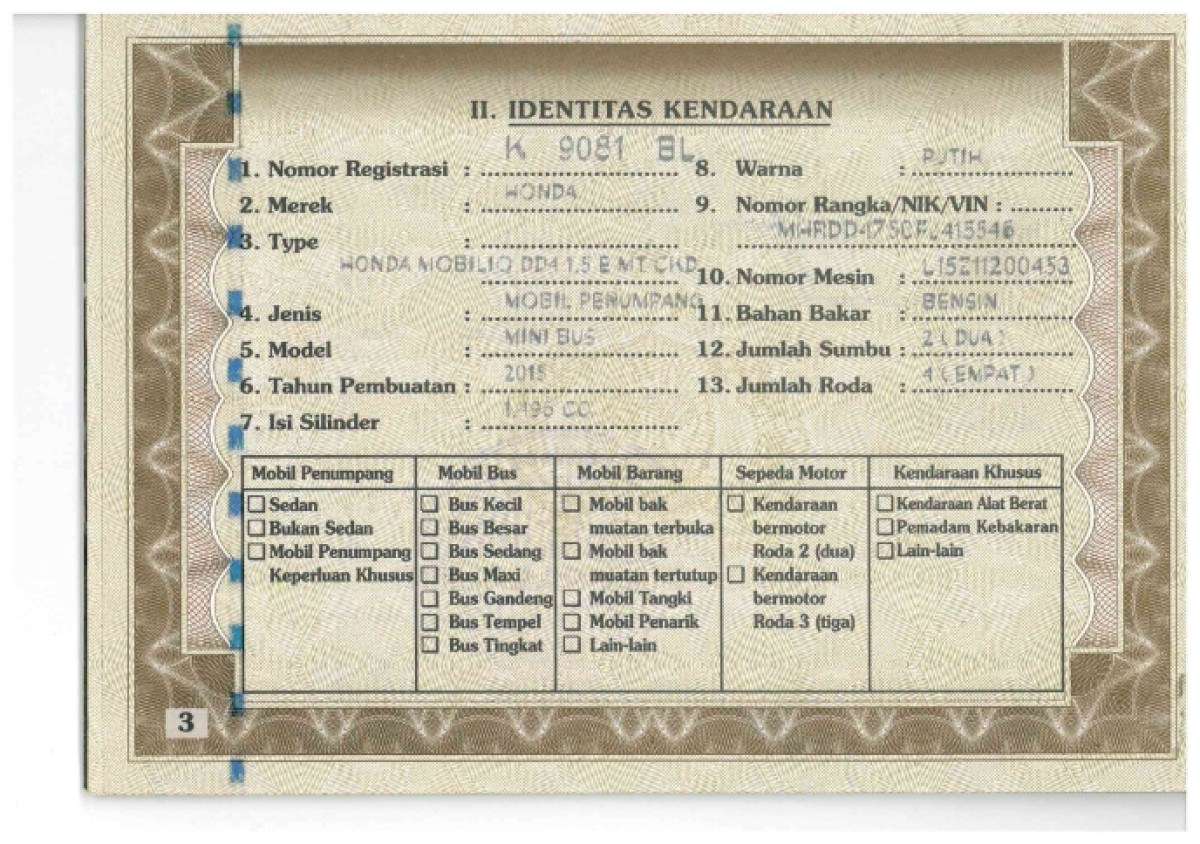 II. IDENTITAS KENDARAAN
1. Nomor Registrasi : K 9081 BL
2. Merek : HONDA
3. Type :
HONDA MOBILIO DD4 1.5 E MT CKD
4. Jenis : MOBIL PENUMPANG
5. Model : MINI BUS
6. Tahun Pembuatan : 2015
7. Isi Silinder : 1,496 CC
8. Warna : PUTIH
9. Nomor Rangka/NIK/VIN :
10. Nomor Mesin : L15Z11200453
11. Bahan Bakar : BENSIN
12. Jumlah Sumbu : 2 ( DUA )
13. Jumlah Roda : 4 ( EMPAT )
Mobil Penumpang
Sedan
Bukan Sedan
Mobil Penumpang
Keperluan Khusus
Mobil Bus
Bus Kecil
Bus Besar
Bus Sedang
Bus Maxi
Bus Gandeng
Bus Tempel
Bus Tingkat
Mobil Barang
Mobil bak
muatan terbuka
Mobil bak
muatan tertutup
Mobil Tangki
Mobil Penarik
Lain-lain
Sepeda Motor
Kendaraan
bermotor
Roda 2 (dua)
Kendaraan
bermotor
Roda 3 (tiga)
Kendaraan Khusus
Kendaraan Alat Berat
Pemadam Kebakaran
Lain-lain
3